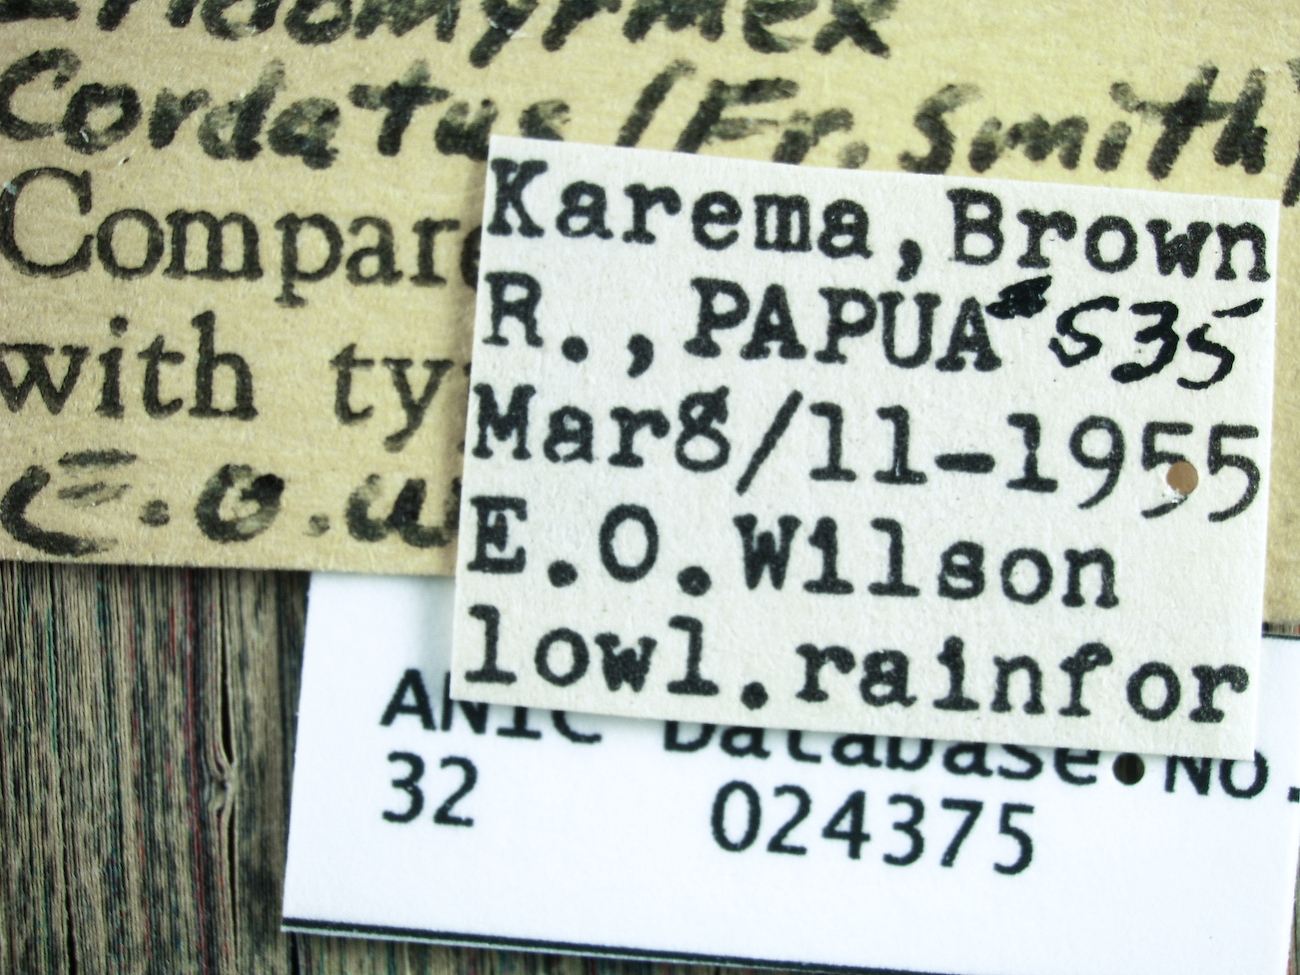 Iridomyrmex
Cordatus (Fr. Smith)
Compare
with ty
E.O.W
Karema, Brown
R., PAPUA #535
Mar8/11-1955
E.O.Wilson
lowl.rainfor
ANIC Database No.
32 024375